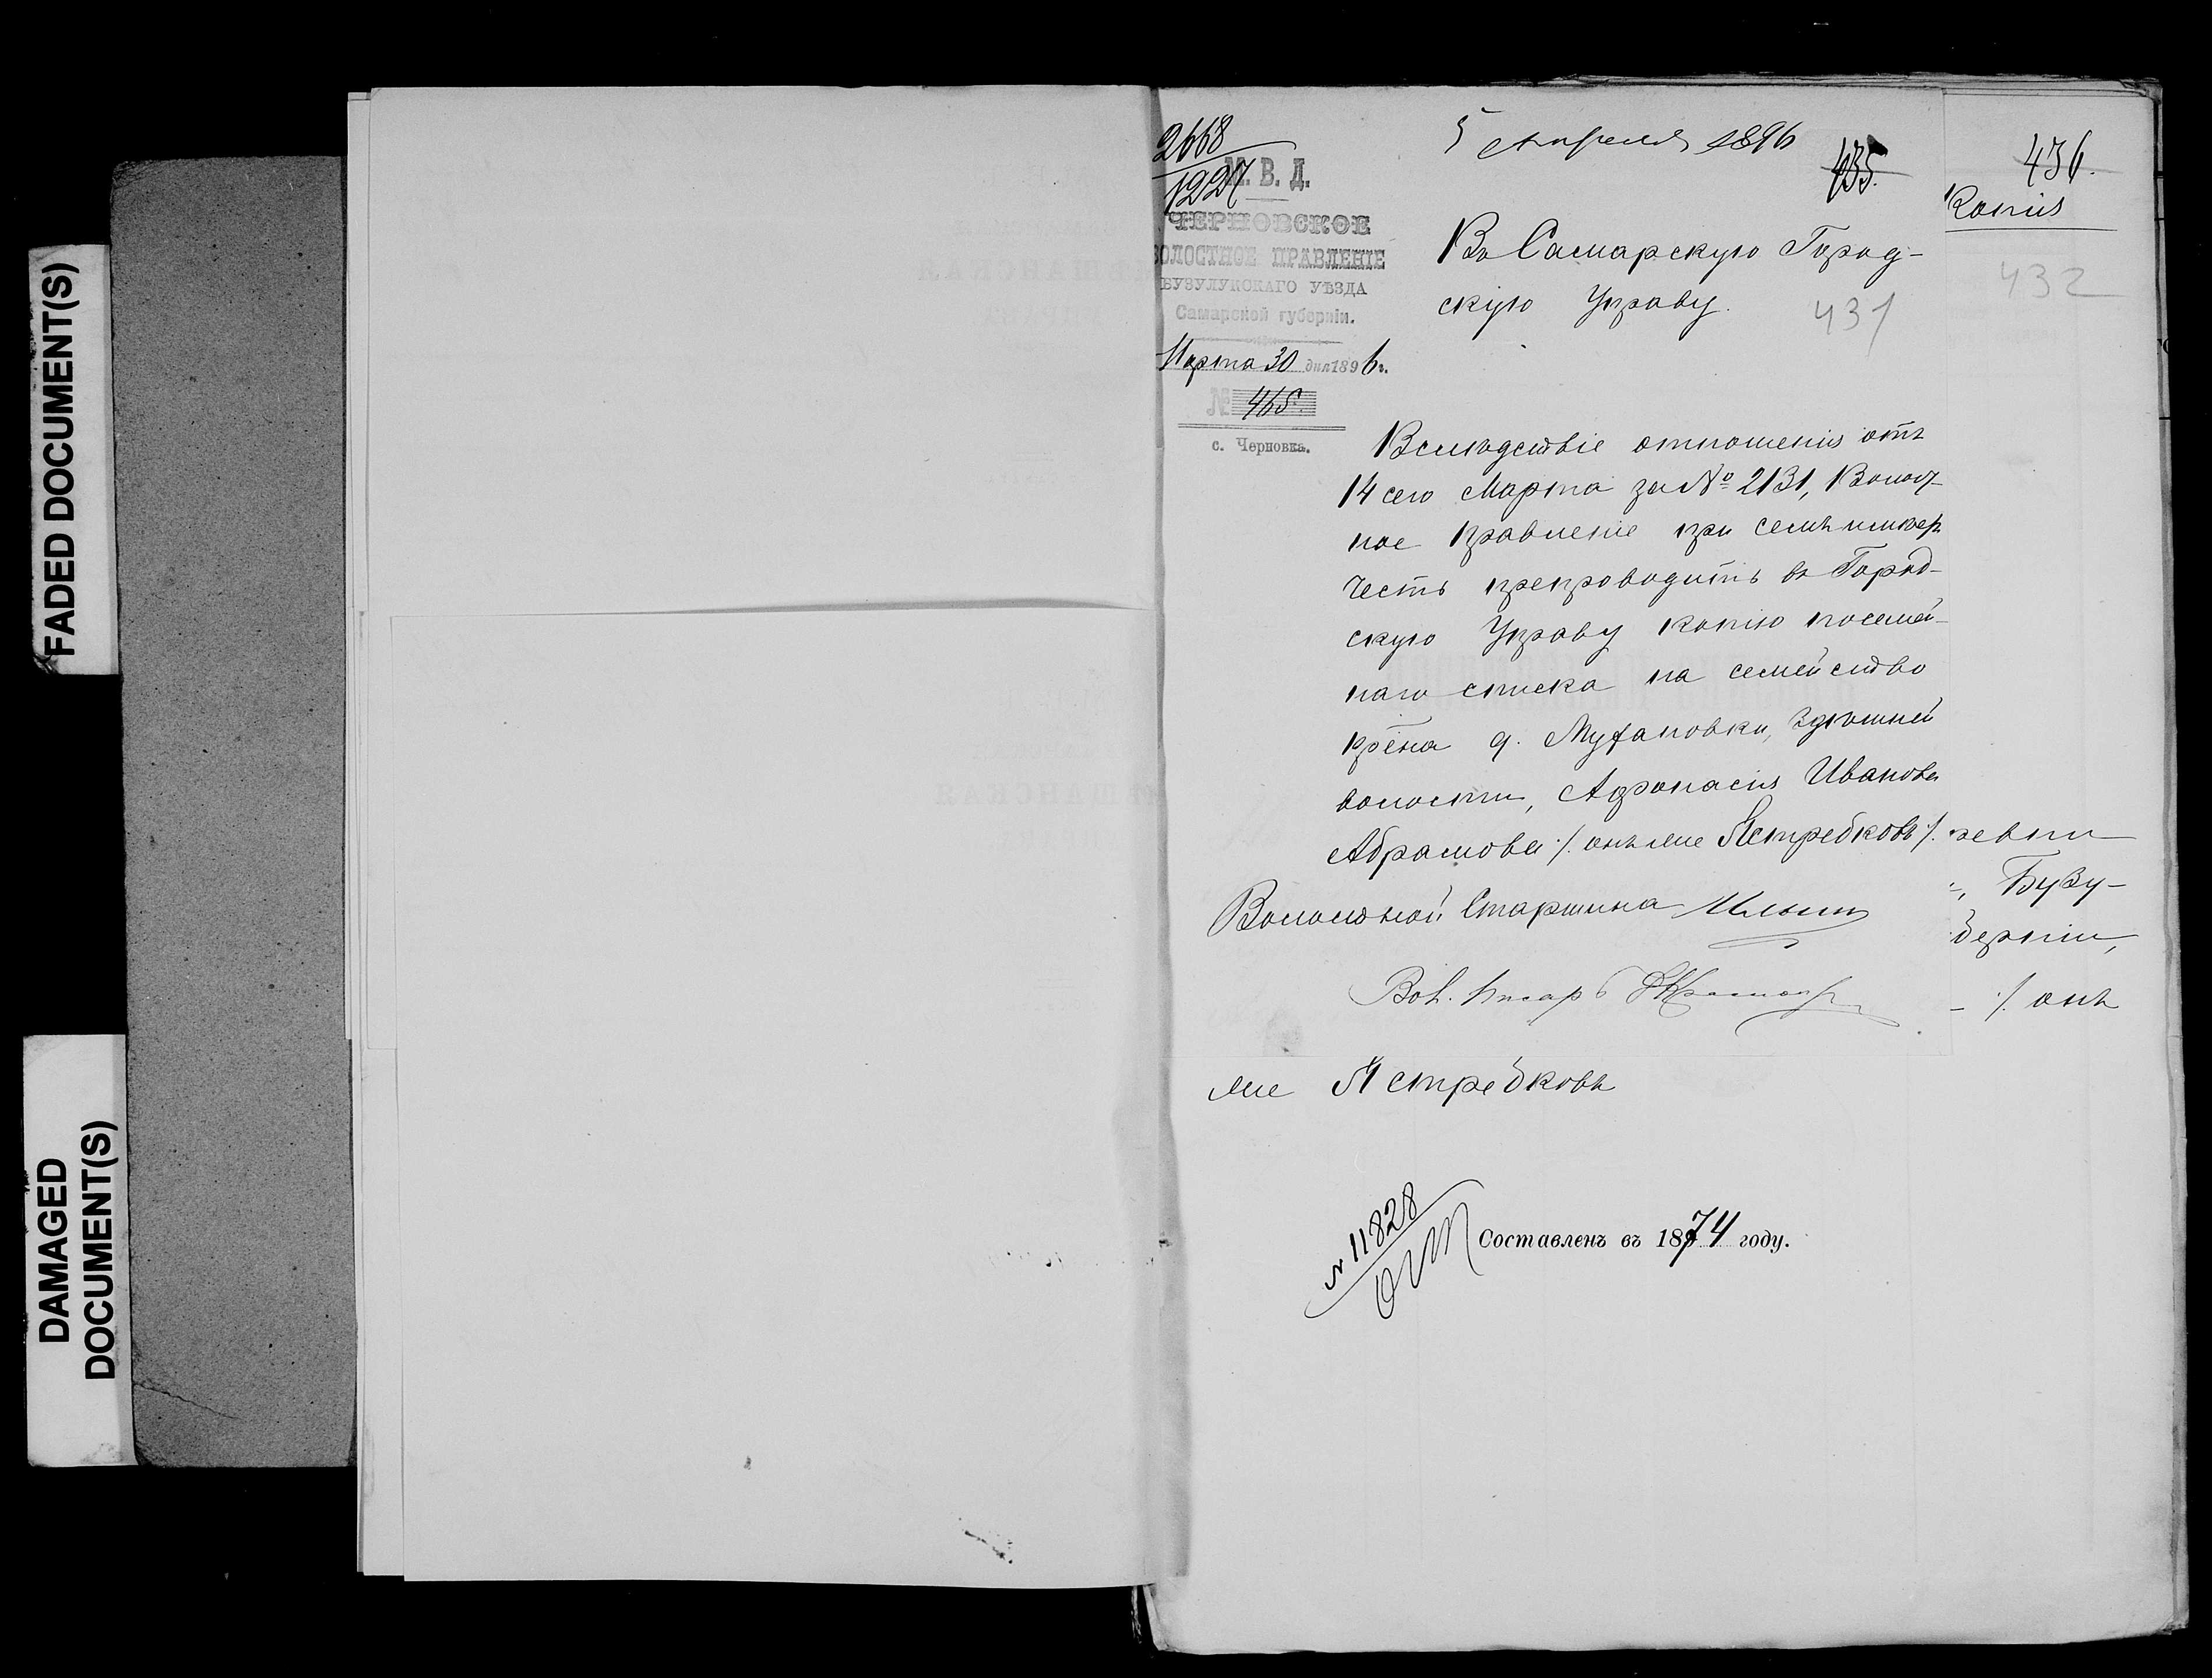 FADED DOCUMENT(S)
DAMAGED
DOCUMENT(S)
2668
1227
М. В. Д.
ЧЕРНОВСКОЕ
ВОЛОСТНОЕ ПРАВЛЕНІЕ
БУЗУЛУКСКАГО УѢЗДА
Самарской губерніи.
Марта 30 дня 1896 г.
№ 465.
с. Черновка.
5 Апреля 1896
435.
Въ Самарскую Город-
скую Управу.
431
Вслѣдствіе отношенія отъ
14 сего Марта за № 2131, Волост-
ное Правленіе при семъ имѣетъ
честь препроводить въ Город-
скую Управу копію посемей-
наго списка на семейство
кр-на д. Мутановки, здѣшней
волости, Афонасія Иванова
Абрамова /. онъ же Ястребковъ /.
Волостной Старшина
Вол. Писарь
436.
Копія
432
ревни
Бузу-
берніи,
/. онъ
же Ястребковъ
№ 11828
Составленъ въ 1874 году.